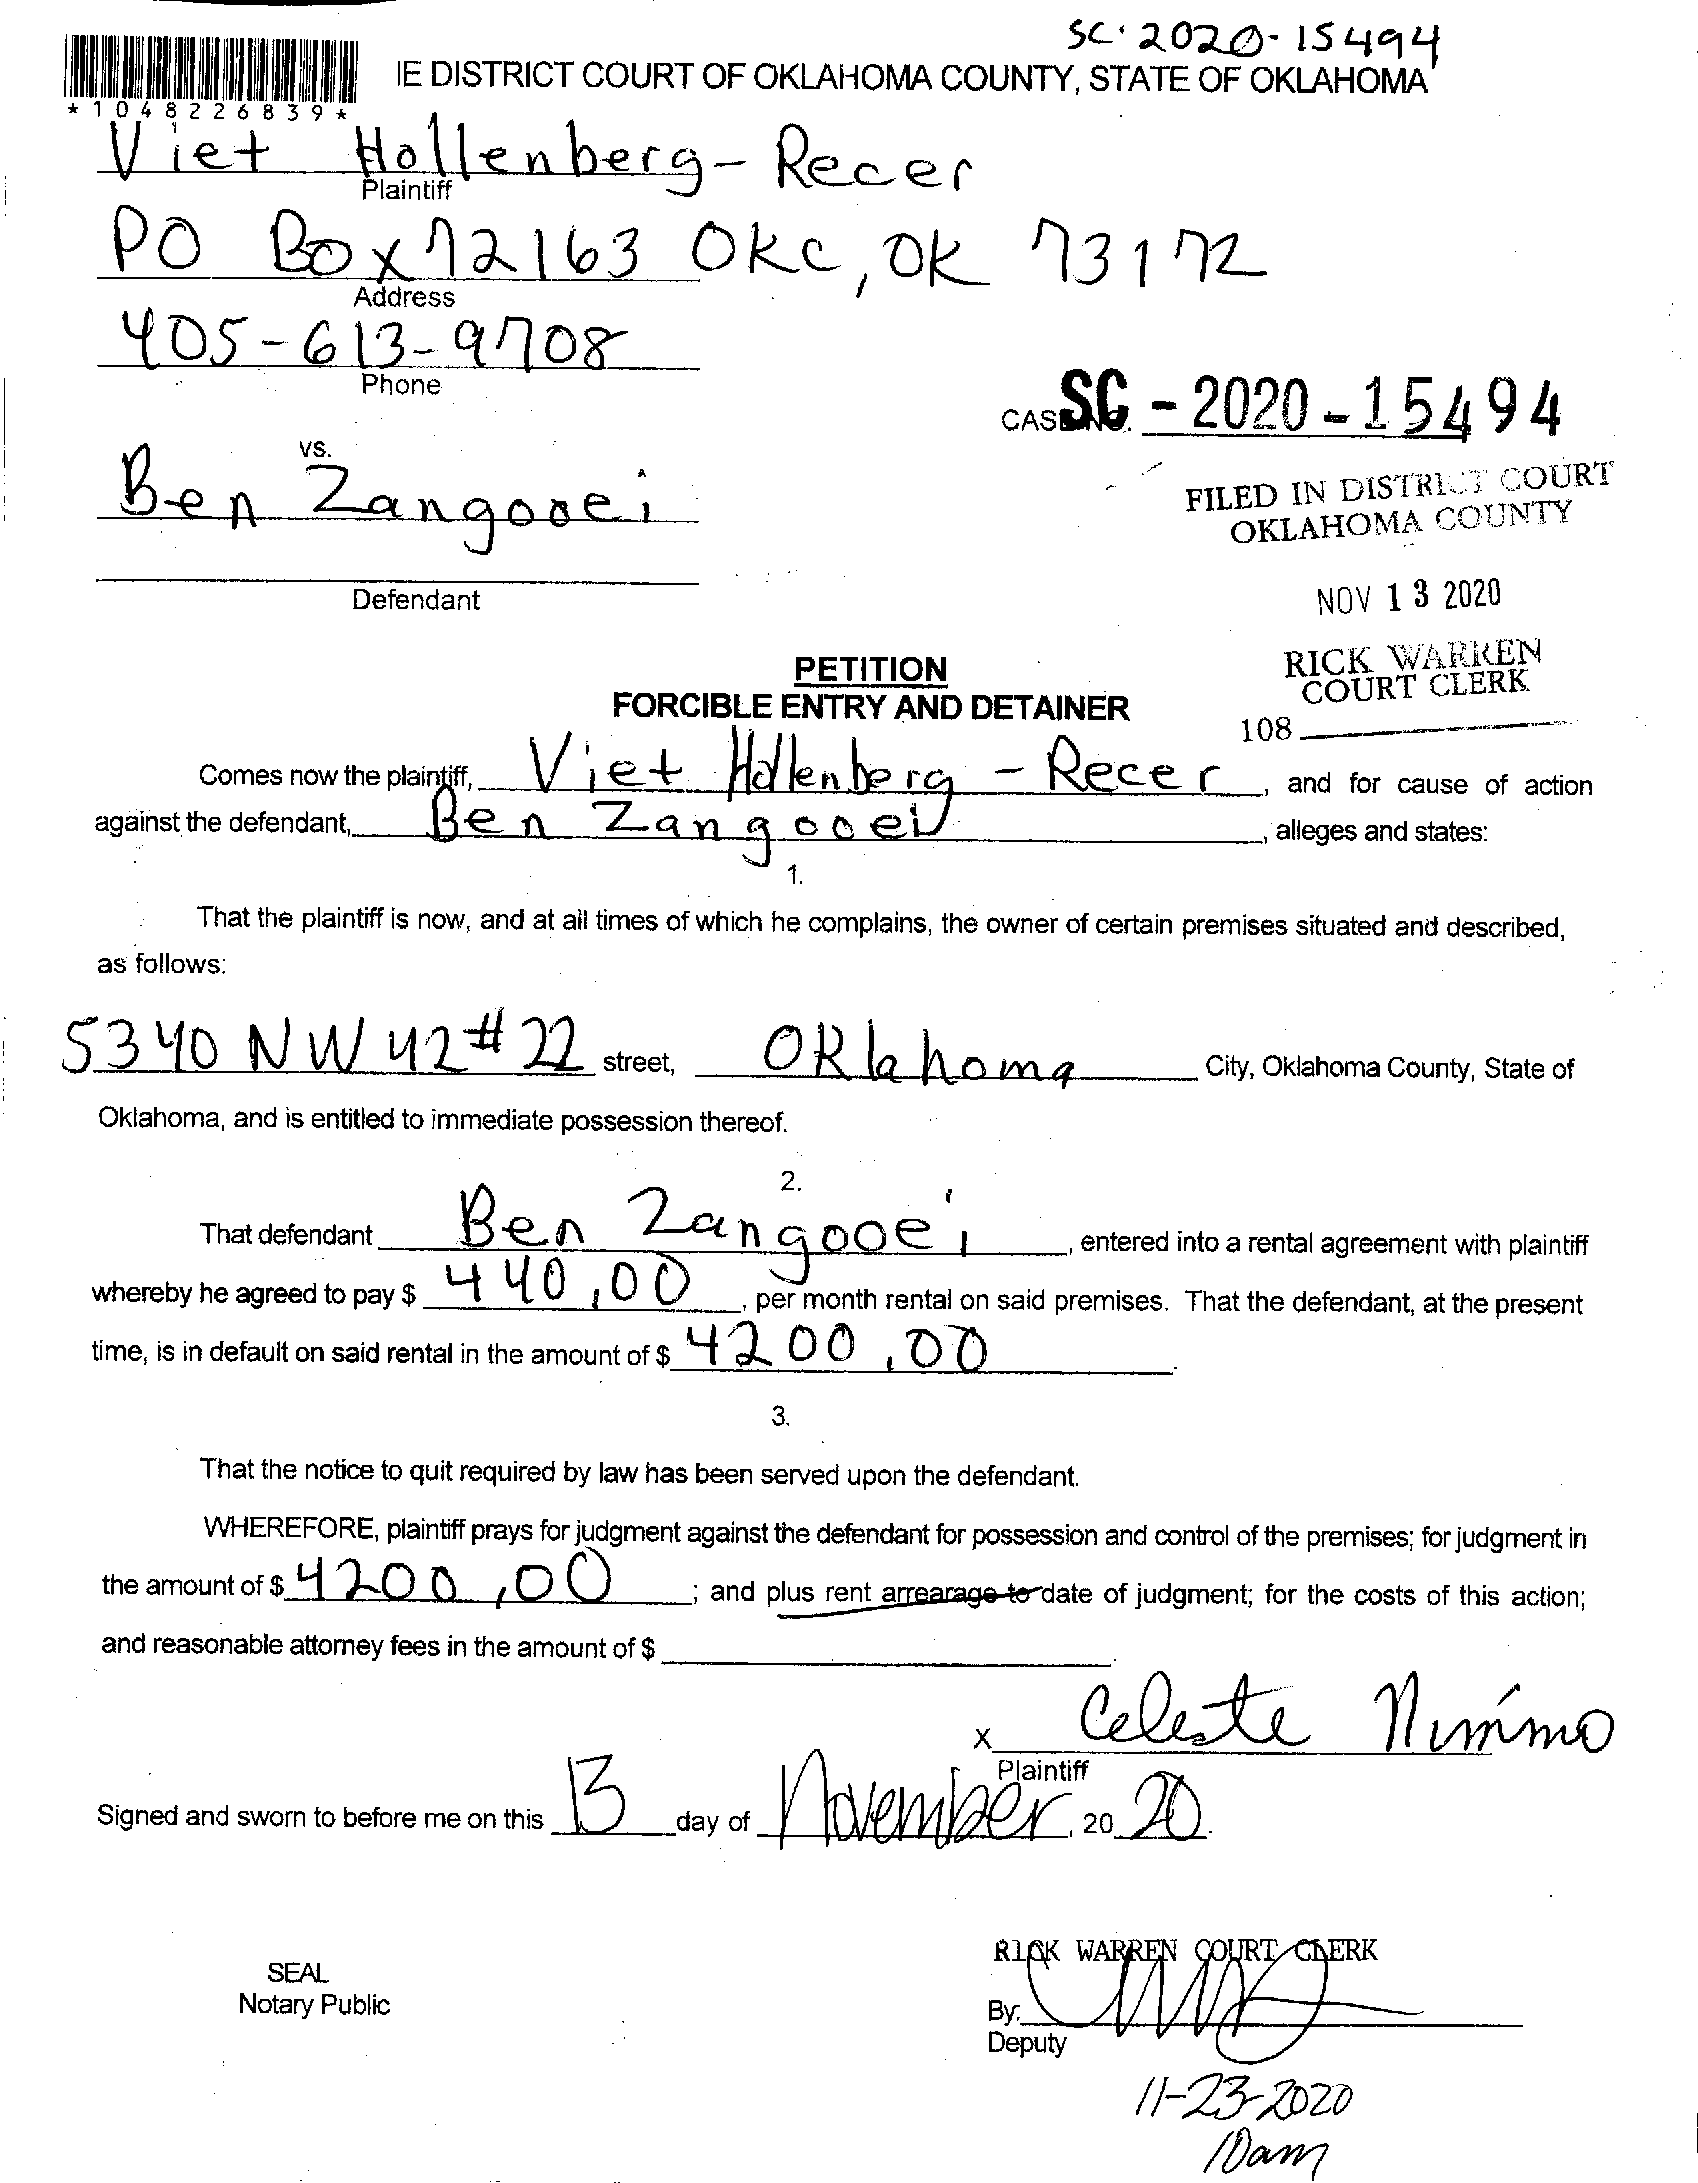 SC-2020-15494
IE DISTRICT COURT OF OKLAHOMA COUNTY, STATE OF OKLAHOMA
*1048226839*
Viet Hollenberg-Recer
Plaintiff
PO Box 72163 OKC, OK 73172
Address
405-613-9708
Phone
CASE NO. SC-2020-15494
vs.
Ben Zangooei
Defendant
FILED IN DISTRICT COURT
OKLAHOMA COUNTY
NOV 13 2020
RICK WARREN
COURT CLERK
108
PETITION
FORCIBLE ENTRY AND DETAINER
Comes now the plaintiff, Viet Hollenberg-Recer, and for cause of action
against the defendant, Ben Zangooei, alleges and states:
1.
That the plaintiff is now, and at all times of which he complains, the owner of certain premises situated and described,
as follows:
5340 NW 42 #22 street, Oklahoma City, Oklahoma County, State of
Oklahoma, and is entitled to immediate possession thereof.
2.
That defendant Ben Zangooei, entered into a rental agreement with plaintiff
whereby he agreed to pay $ 440.00, per month rental on said premises. That the defendant, at the present
time, is in default on said rental in the amount of $ 4200.00.
3.
That the notice to quit required by law has been served upon the defendant.
WHEREFORE, plaintiff prays for judgment against the defendant for possession and control of the premises; for judgment in
the amount of $ 4200.00; and plus rent arrearage to date of judgment; for the costs of this action;
and reasonable attorney fees in the amount of $
x Celeste Nimmo
Plaintiff
Signed and sworn to before me on this 13 day of November, 2020.
SEAL
Notary Public
RICK WARREN COURT CLERK
By:
Deputy
11-23-2020
10am